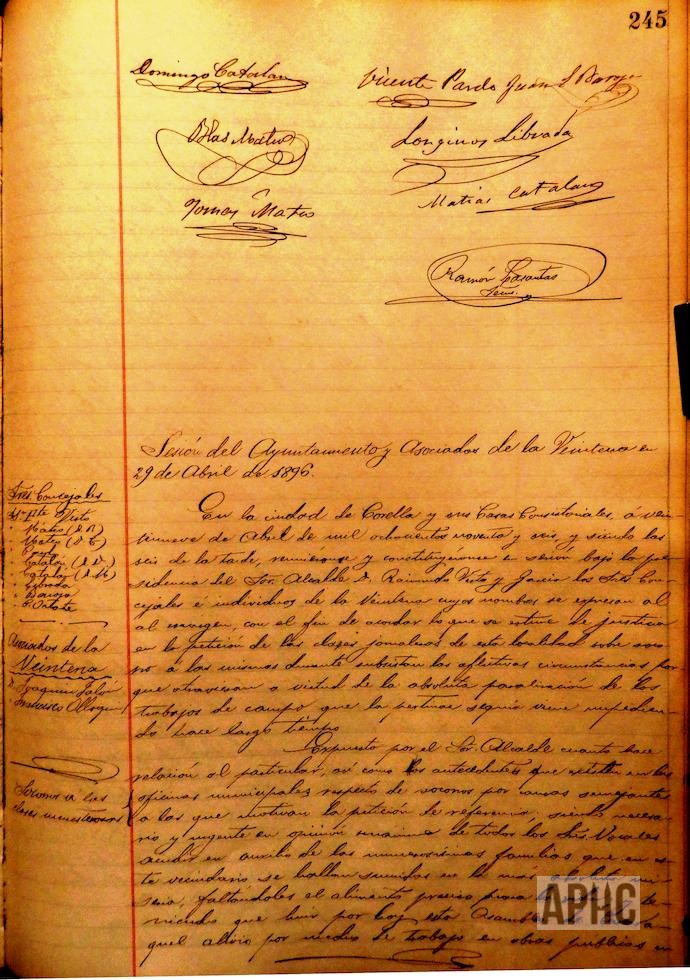 245
Domingo Catalan
Vicente Pardo Juan J Baroja
Blas Mateo
Longinos Librada
Tomas Mateo
Matias Catalan
Ramón
Sesión del Ayuntamiento y Asociados de la Veintena en
29 de Abril de 1896.
Sres. Concejales
Visto
Mateo (D. B)
Mateo (D. T)
Pardo
Catalán (D. D.)
Catalán (D. M)
Librada
Baroja
Oñate
Asociados de la
Veintena
D. Joaquin
Francisco
Socorros a las
clases menesterosas
En la ciudad de Corella y sus Casas Consistoriales, á vein-
tinueve de Abril de mil ochocientos noventa y seis, y siendo las
seis de la tarde, reuniéronse y constituyéronse en sesión bajo la pre-
sidencia del Sor. Alcalde D. Raimundo Visto y Garcia los Sres Con-
cejales é individuos de la Veintena cuyos nombres se expresan al
al margen, con el fin de acordar lo que se estime de justicia
en la petición de las clases jornaleras de esta localidad sobre soco-
rro á las mismas durante subsistan las aflictivas circunstancias por
que atraviesan a virtud de la absoluta paralización de los
trabajos de campo que la pertinaz sequia viene impidien-
do hace largo tiempo
Expuesto por el Sor. Alcalde cuanto hace
relación al particular, así como los antecedentes que existen en las
oficinas municipales respecto de socorros por causas semejantes
a las que motivan la petición de referencia, siendo necesa-
rio y urgente en opinión unánime de todos los Sres. Vocales
acudir en auxilio de las numerosísimas familias que en es-
te vecindario se hallan sumidas en la mas absoluta mi-
seria, faltándoles el alimento preciso para
niendo que por hoy esta Asamblea
quel alivio por medio de trabajo en obras publicas en
APHC